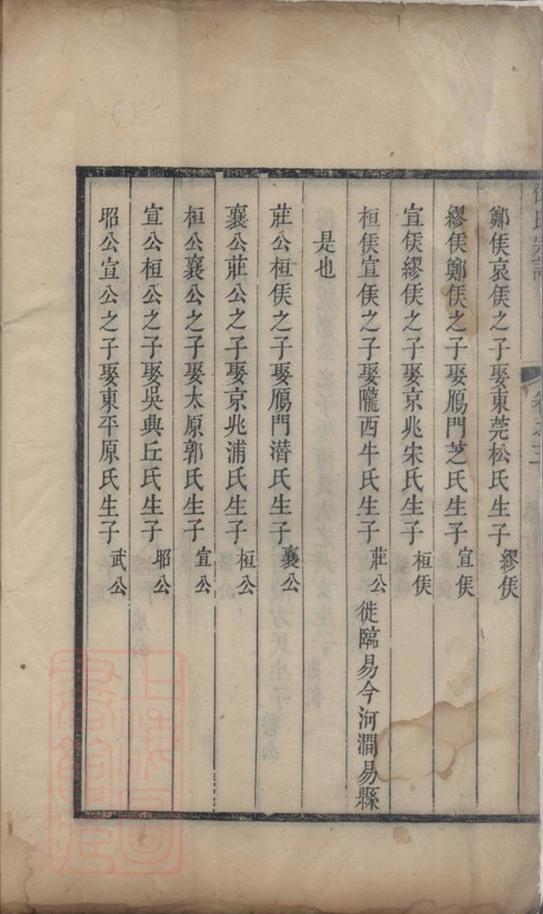 鄭侯哀侯之子娶東莞松氏生子繆侯
繆侯鄭侯之子娶鴈門芝氏生子宣侯
宣侯繆侯之子娶京兆宋氏生子桓侯
桓侯宣侯之子娶隴西牛氏生子莊公徙臨易今河澗易縣
是也
莊公桓侯之子娶鴈門潜氏生子襄公
襄公莊公之子娶京兆浦氏生子桓公
桓公襄公之子娶太原郭氏生子宣公
宣公桓公之子娶吳興丘氏生子昭公
昭公宣公之子娶東平原氏生子武公